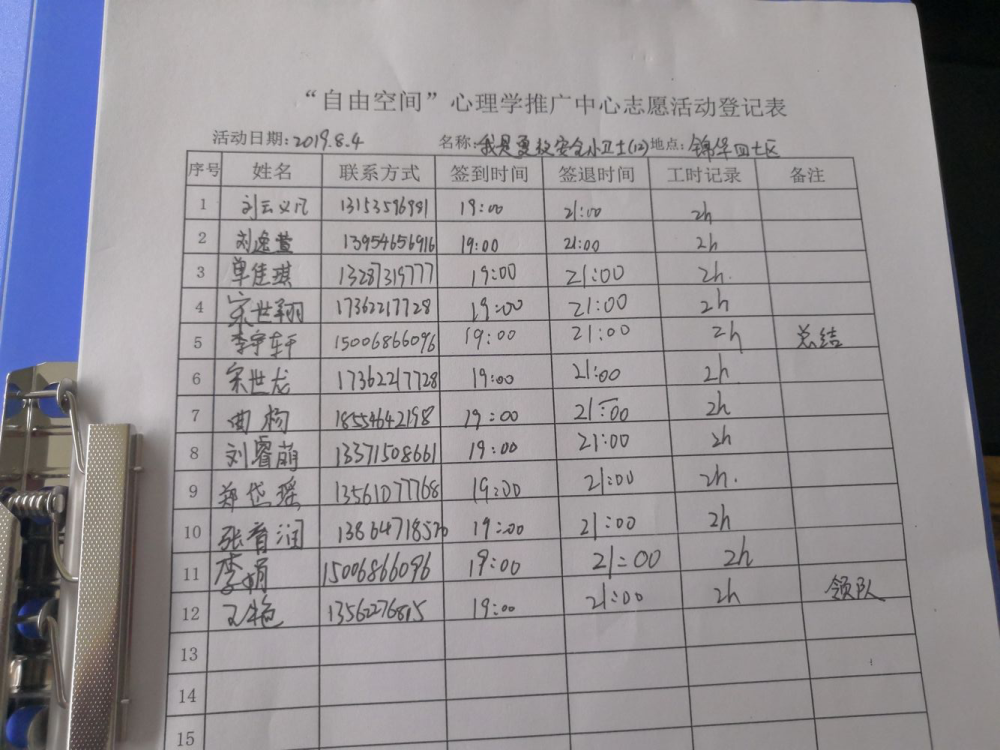 “自由空间”心理学推广中心志愿活动登记表
活动日期:2019.8.4 名称:我是夏牧安全小卫士(12) 地点:锦华四七区
序号 姓名 联系方式 签到时间 签退时间 工时记录 备注
1 刘云义凡 13153596981 19:00 21:00 2h
2 刘逸萱 13954656916 19:00 21:00 2h
3 单佳琪 13287319777 19:00 21:00 2h.
4 宗世翔 17362217728 19:00 21:00 2h
5 李宇轩 15006866096 19:00 21:00 2h 总结
6 宗世龙 17362217728 19:00 21:00 2h
7 曲 18554642198 19:00 21:00 2h
8 刘睿萌 13371508661 19:00 21:00 2h
9 郑岱瑶 13561077768 19:00 21:00 2h.
10 张育润 19:00 21:00 2h
11 李娟 15006866096 19:00 21:00 2h
12 王艳 1356276815 19:00 21:00 2h 领队
13
14
15